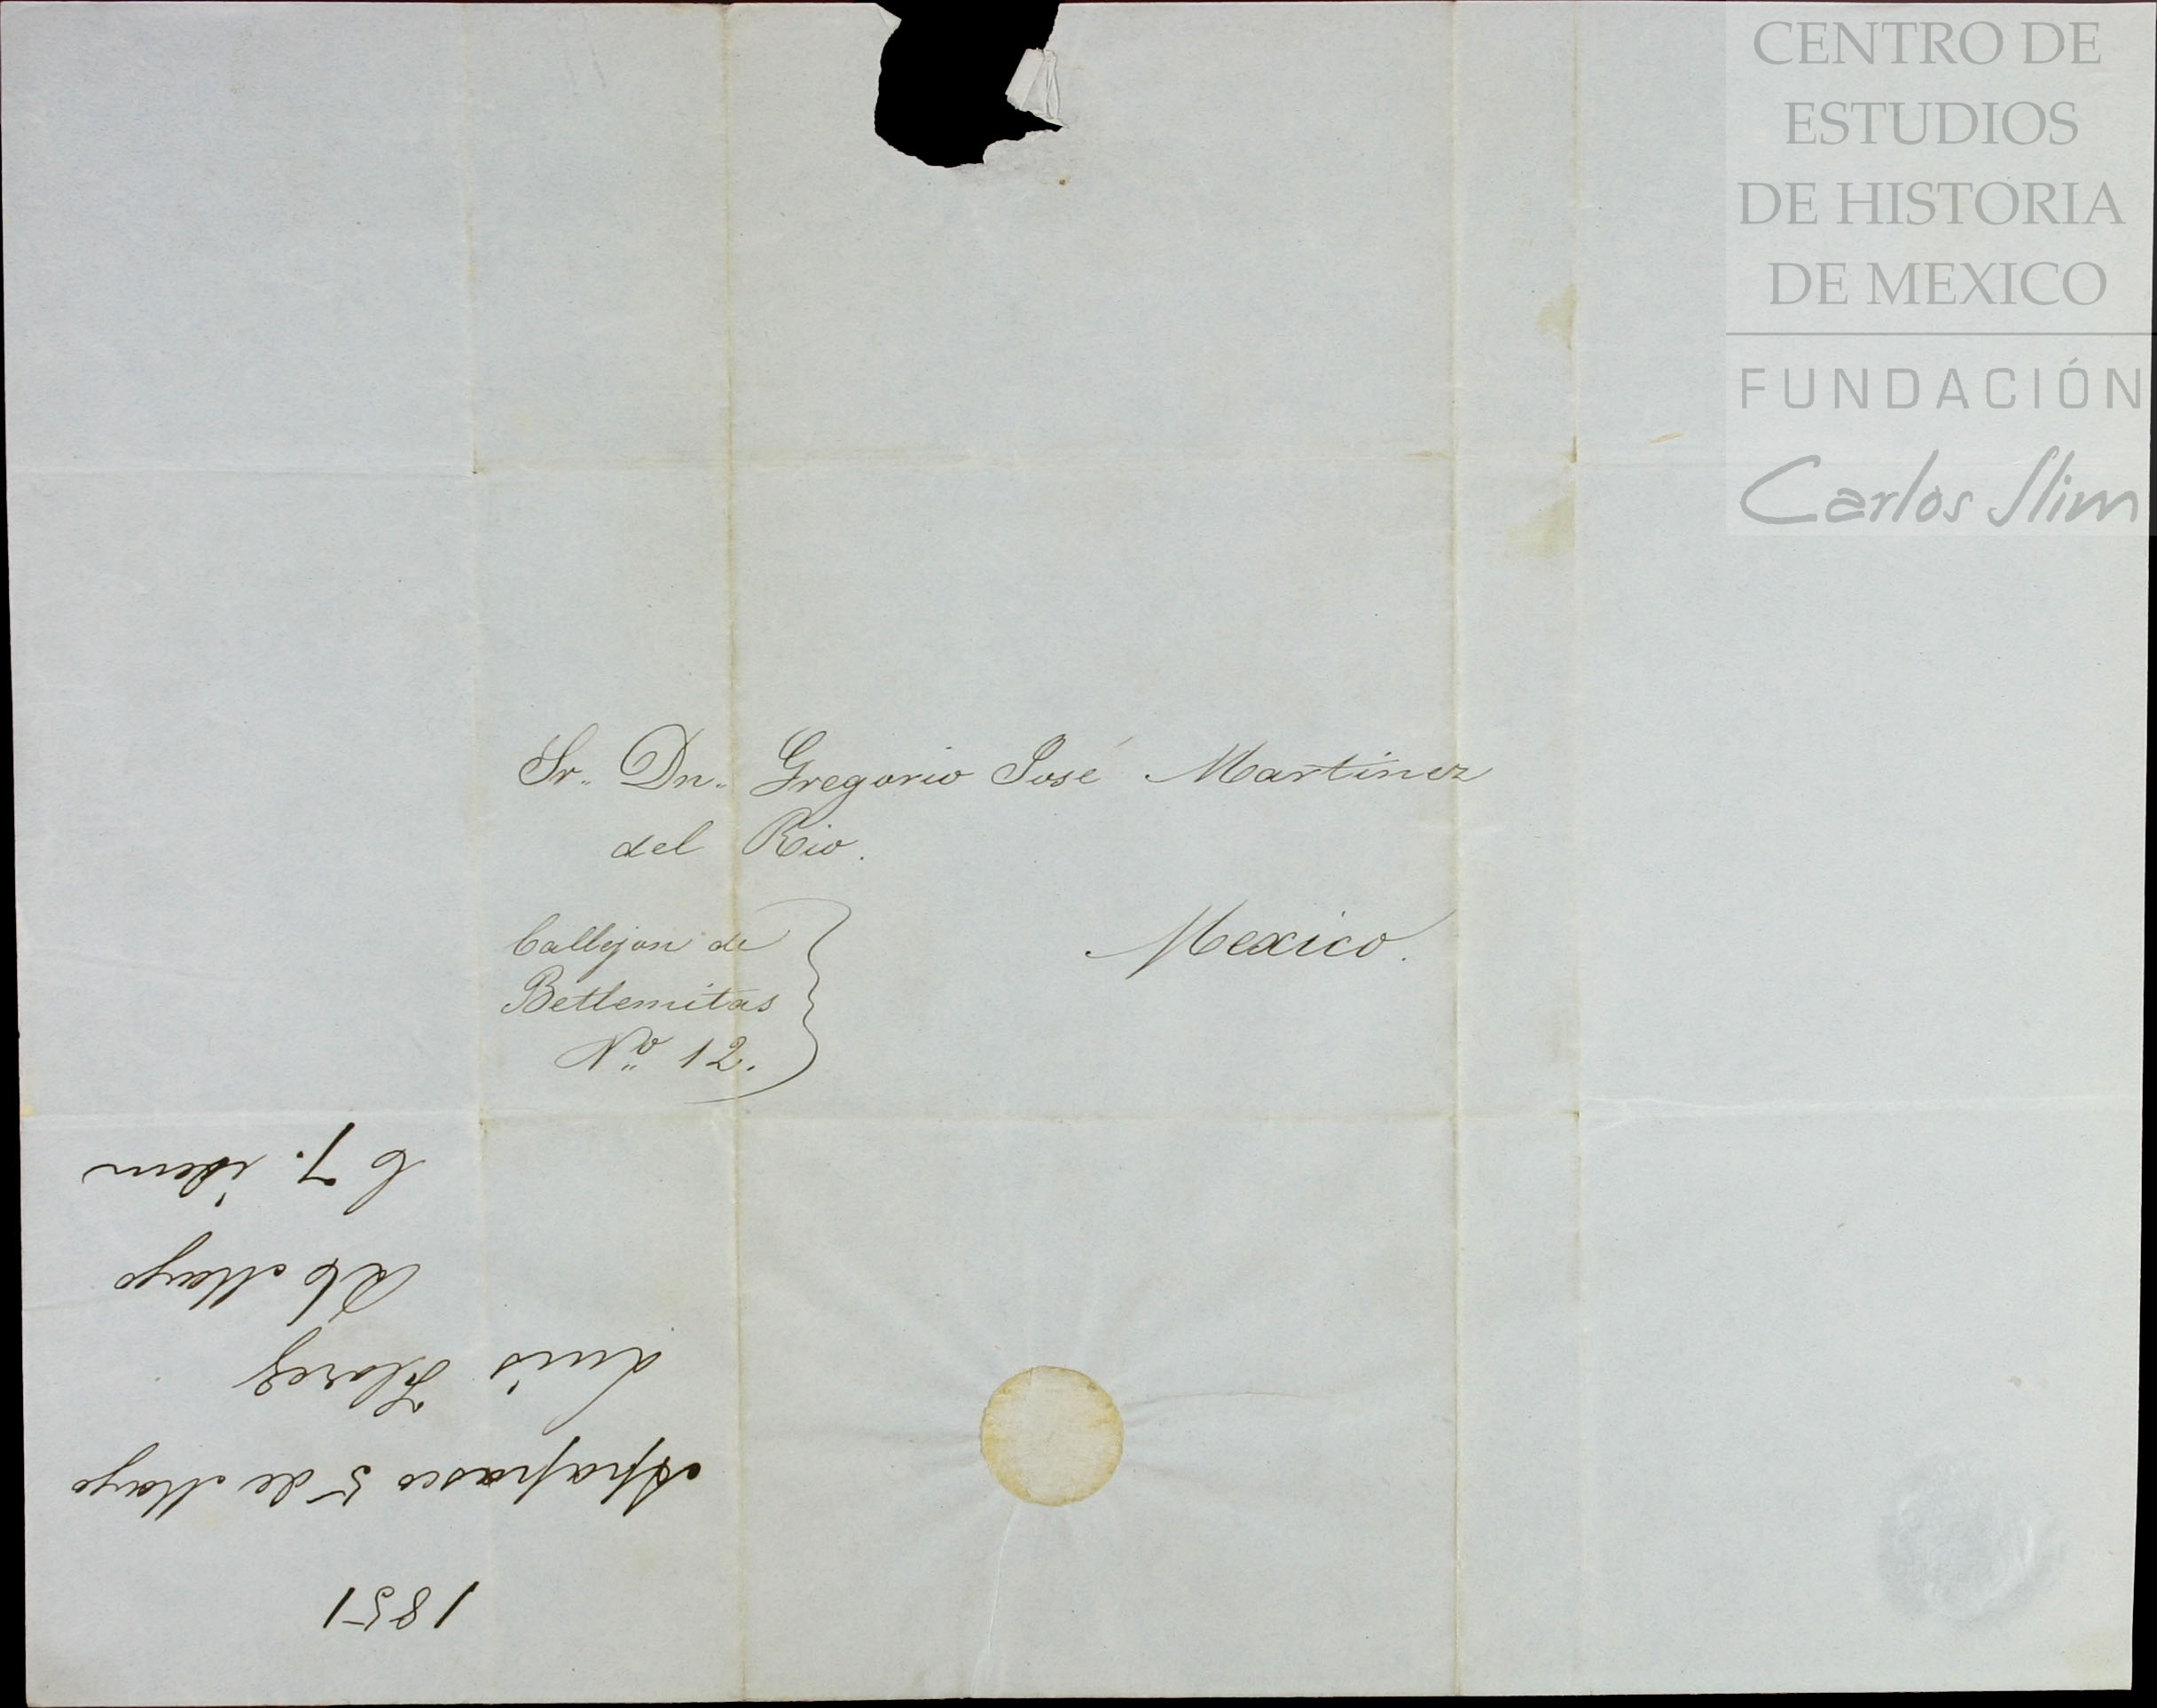 Sr.. Dn.. Gregorio José Martinez
del Rio.
Mexico.
Callejon de
Betlemitas
No.. 12.
1851
Apapasco 5 de Mayo
Luis Florez
R 6 Mayo
C 7. idem
CENTRO DE
ESTUDIOS
DE HISTORIA
DE MEXICO
FUNDACIÓN
Carlos Slim